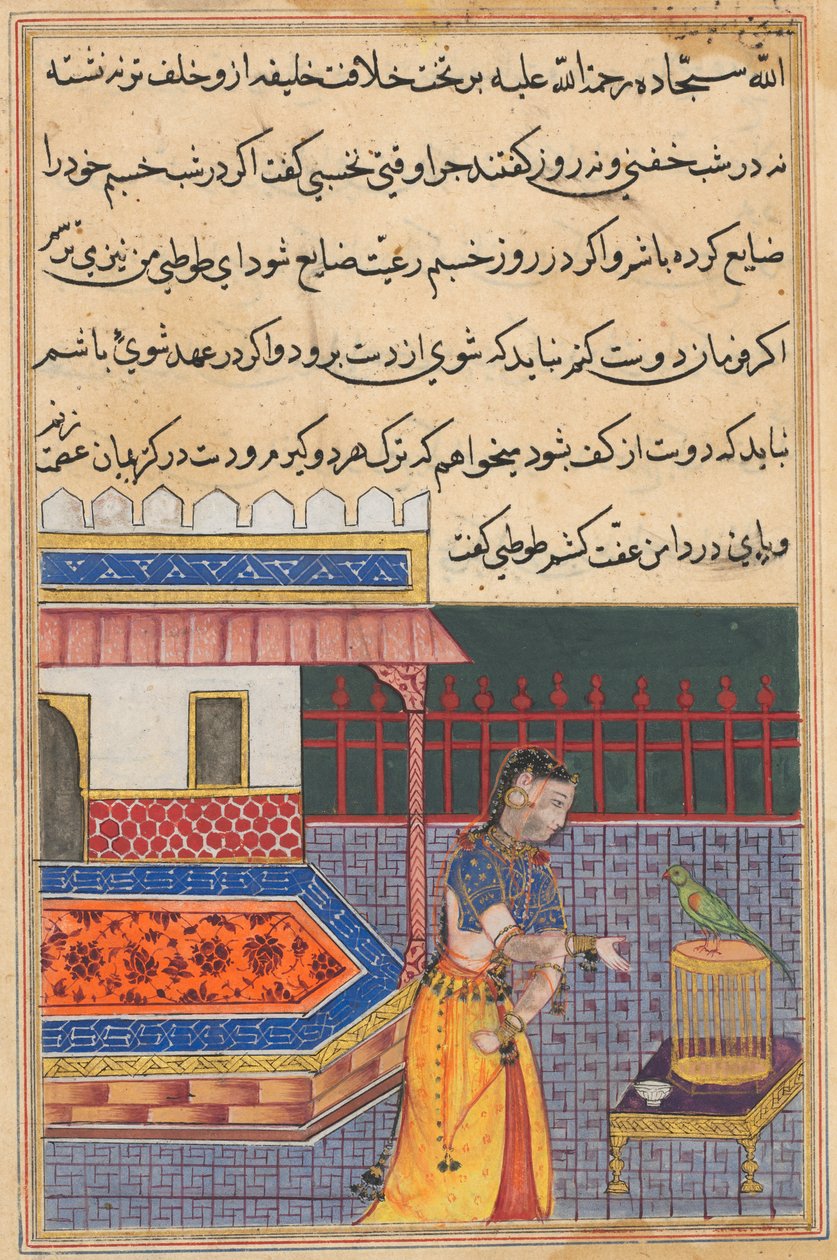 الله سجّاده رحمة الله علیه بر تخت خلافت خلیفه از و خلف تر نه نشته
نه در شب خفتی و نه روز کفتند چرا وقتی نخسبی کفت اکر در شب خسبم خود را
ضایع کرده باشم و اکر در روز خسبم رعیّت ضایع شود ای طوطی من نیز می ترسم
اکر فرمان دوست کنم نباید که شوی از دست برود و اکر در عهد شوی باشم
نباید که دوست از کف بشود میخواهم که ترک هر دو کیرم و دست در کریبان عصمت زنم
و پای در دامن عفّت کشم طوطی کفت